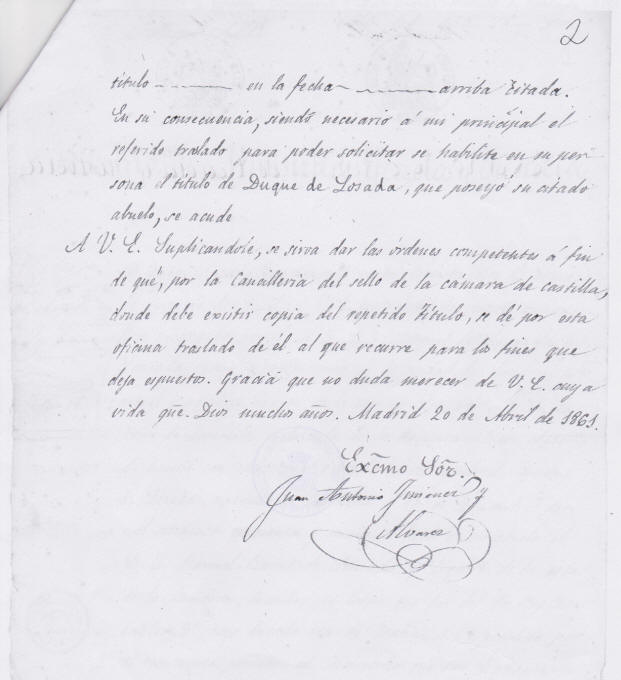 2
título en la fecha arriba citada.
En su consecuencia, siendo necesario á mi principal el
referido traslado para poder solicitar se habilite en su per-
sona el título de Duque de Losada, que poseyó su citado
abuelo, se acude
A V. E. Suplicandole, se sirva dar las órdenes competentes á fin
de qué, por la Cancilleria del sello de la cámara de Castilla,
donde debe existir copia del repetido Título, se dé por esta
oficina traslado de él al que recurre para los fines que
deja espuestos. Gracia que no duda merecer de V. E. cuya
vida güe. Dios muchos años. Madrid 20 de Abril de 1861.
Excmo Sor.
Juan Antonio Jimenez y
Alvarez